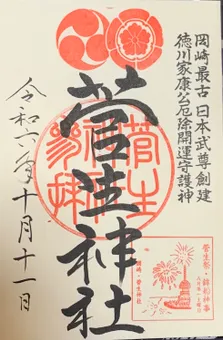 岡崎最古 日本武尊創建
徳川家康公厄除開運守護神
菅生神社
令和六年十月十一日
菅生神社
菅生祭・鉾船神事
岡崎・菅生神社